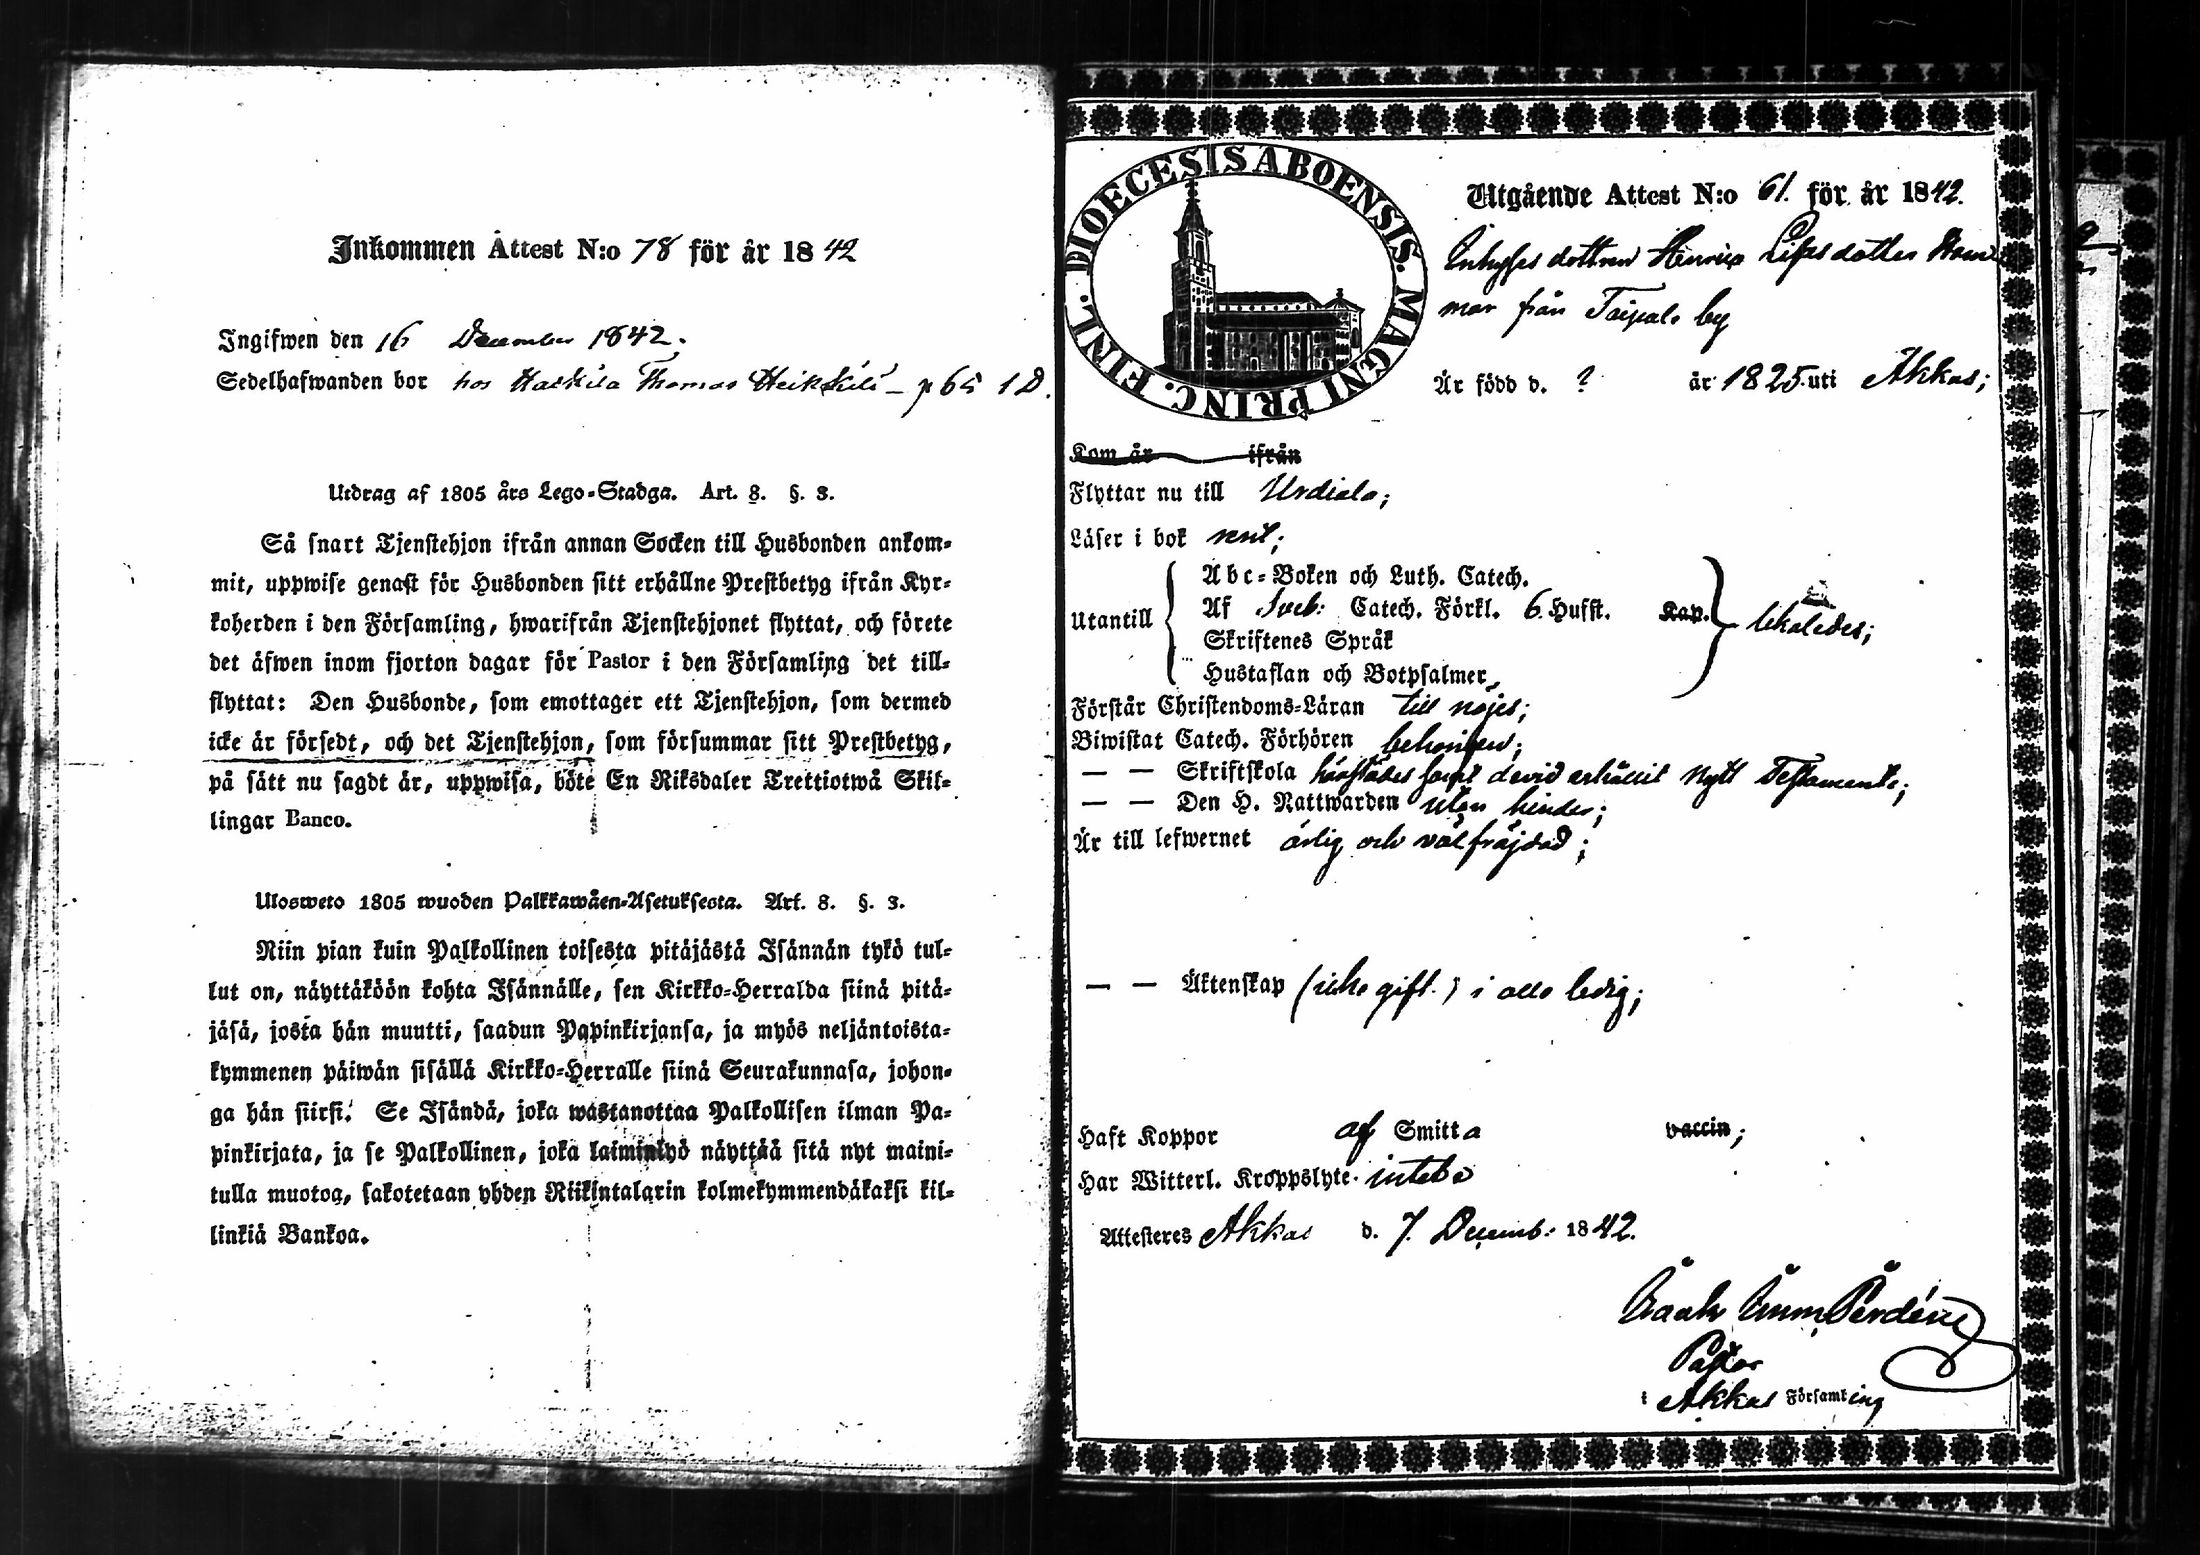 Inkommen Attest N:o 78 för år 1842
Ingifwen den 16 December 1842.
Sedelhafwanden bor hos Thomas Heikkilä – p 65 1 D.
Utdrag af 1805 års Lego-Stadga. Art. 8. §. 3.
Så snart Tjenstehjon ifrån annan Socken till Husbonden ankom-
mit, uppwise genast för Husbonden sitt erhållne Prestbetyg ifrån Kyr-
koherden i den Församling, hwarifrån Tjenstehjonet flyttat, och förete
det äfwen inom fjorton dagar för Pastor i den Församling det till-
flyttat: Den Husbonde, som emottager ett Tjenstehjon, som dermed
icke är försedt, och det Tjenstehjon, som försummar sitt Prestbetyg,
på sätt nu sagdt är, uppwisa, böte En Riksdaler Trettiotwå Skil-
lingar Banco.
Ulosweto 1805 wuoden Palkkawäen-Asetuksesta. Art. 8. §. 3.
Niin pian kuin Palkollinen toisesta pitäjästä Isännän tykö tul-
lut on, näyttäköön kohta Isännälle, sen Kirkko-Herralda siinä pitä-
jäsä, josta hän muutti, saadun Papinkirjansa, ja myös neljäntoista-
kymmenen päiwän sisällä Kirkko-Herralle siinä Seurakunnasa, johon-
ga hän siirsi. Se Isändä, joka wastanottaa Palkollisen ilman Pa-
pinkirjata, ja se Palkollinen, joka laiminlyö näyttää sitä nyt maini-
tulla muotog, sakotetaan yhden Riikintalarin kolmekymmendäkaksi kil-
linkiä Bankoa.
DIOECESIS ABOENSIS. MAGNI PRINC. FINL.
Utgående Attest N:o 61. för år 1842.
Inhyses dottren Henrica dotter
från Taipale by
Är född d. ? år 1825. uti Akkas;
Kom år ifrån
Flyttar nu till Urdiala;
Läser i bok rent;
Abc-Boken och Luth. Catech.
Utantill Af Sveb: Catech. Förkl. 6. Hufst. Kap.
Skriftenes Språk
Hustaflan och Botpsalmer
Förstår Christendoms-Läran till nöjes;
Biwistat Catech. Förhören behörigen;
— — Skriftskola härstädes samt dervid erhållit Nytt Testamente;
— — Den H. Nattwarden utan hinder;
Är till lefwernet ärlig och välfräjdad;
— — Äktenskap (icke gift.) i allo ledig;
Haft Koppor af Smitta vaccin;
Har Witterl. Kroppslyte intet
Attesteres Akkas d. 7. Decemb: 1842.
Pastor
i Akkas Församling